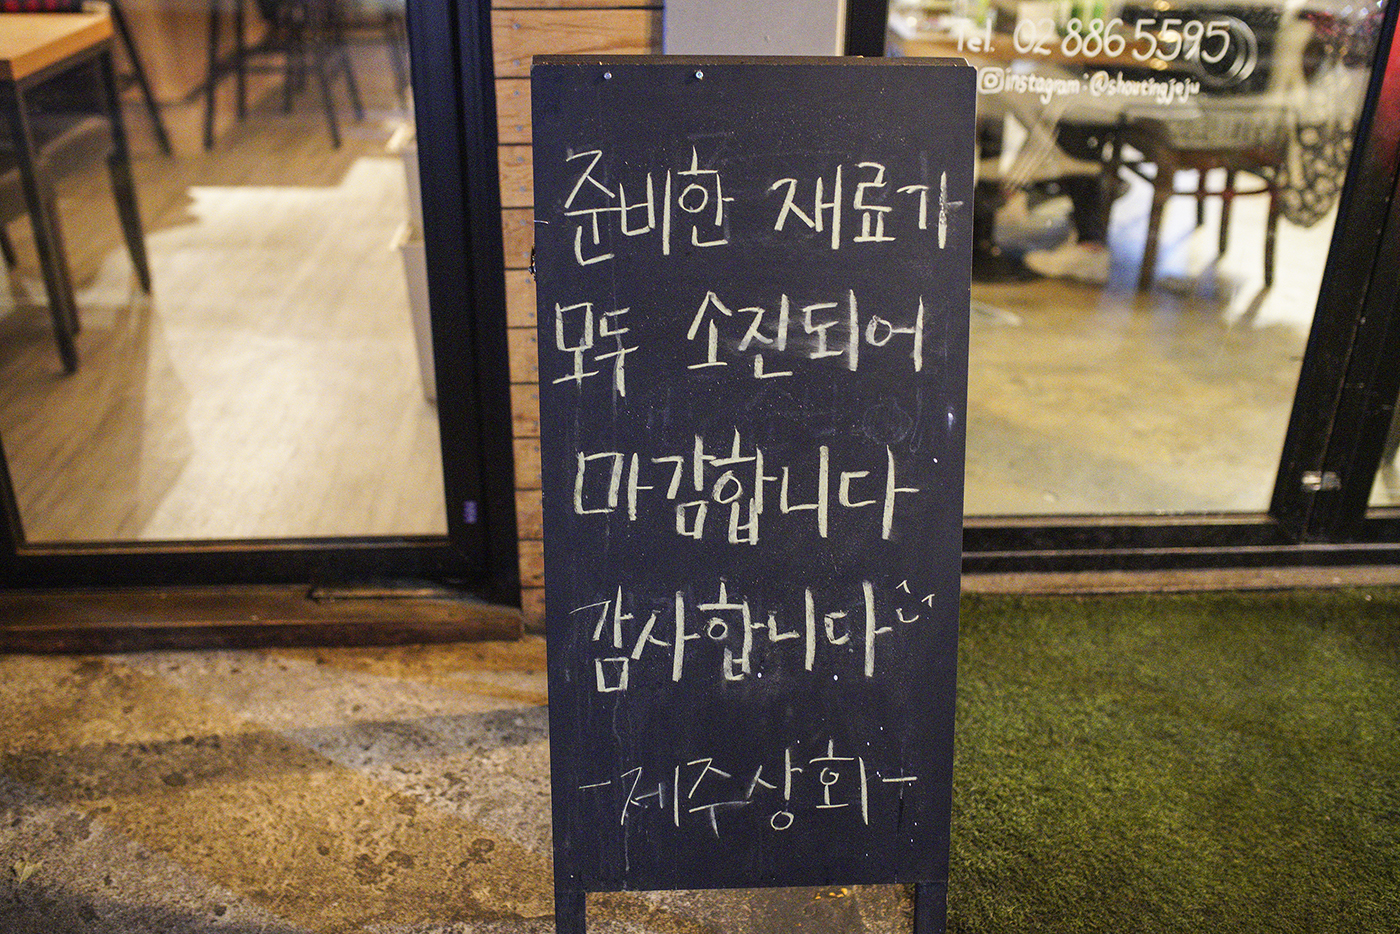 Tel. 02 886 5595
instagram : @shoutingjeju
준비한 재료가
모두 소진되어
마감합니다
감사합니다
-제주상회-